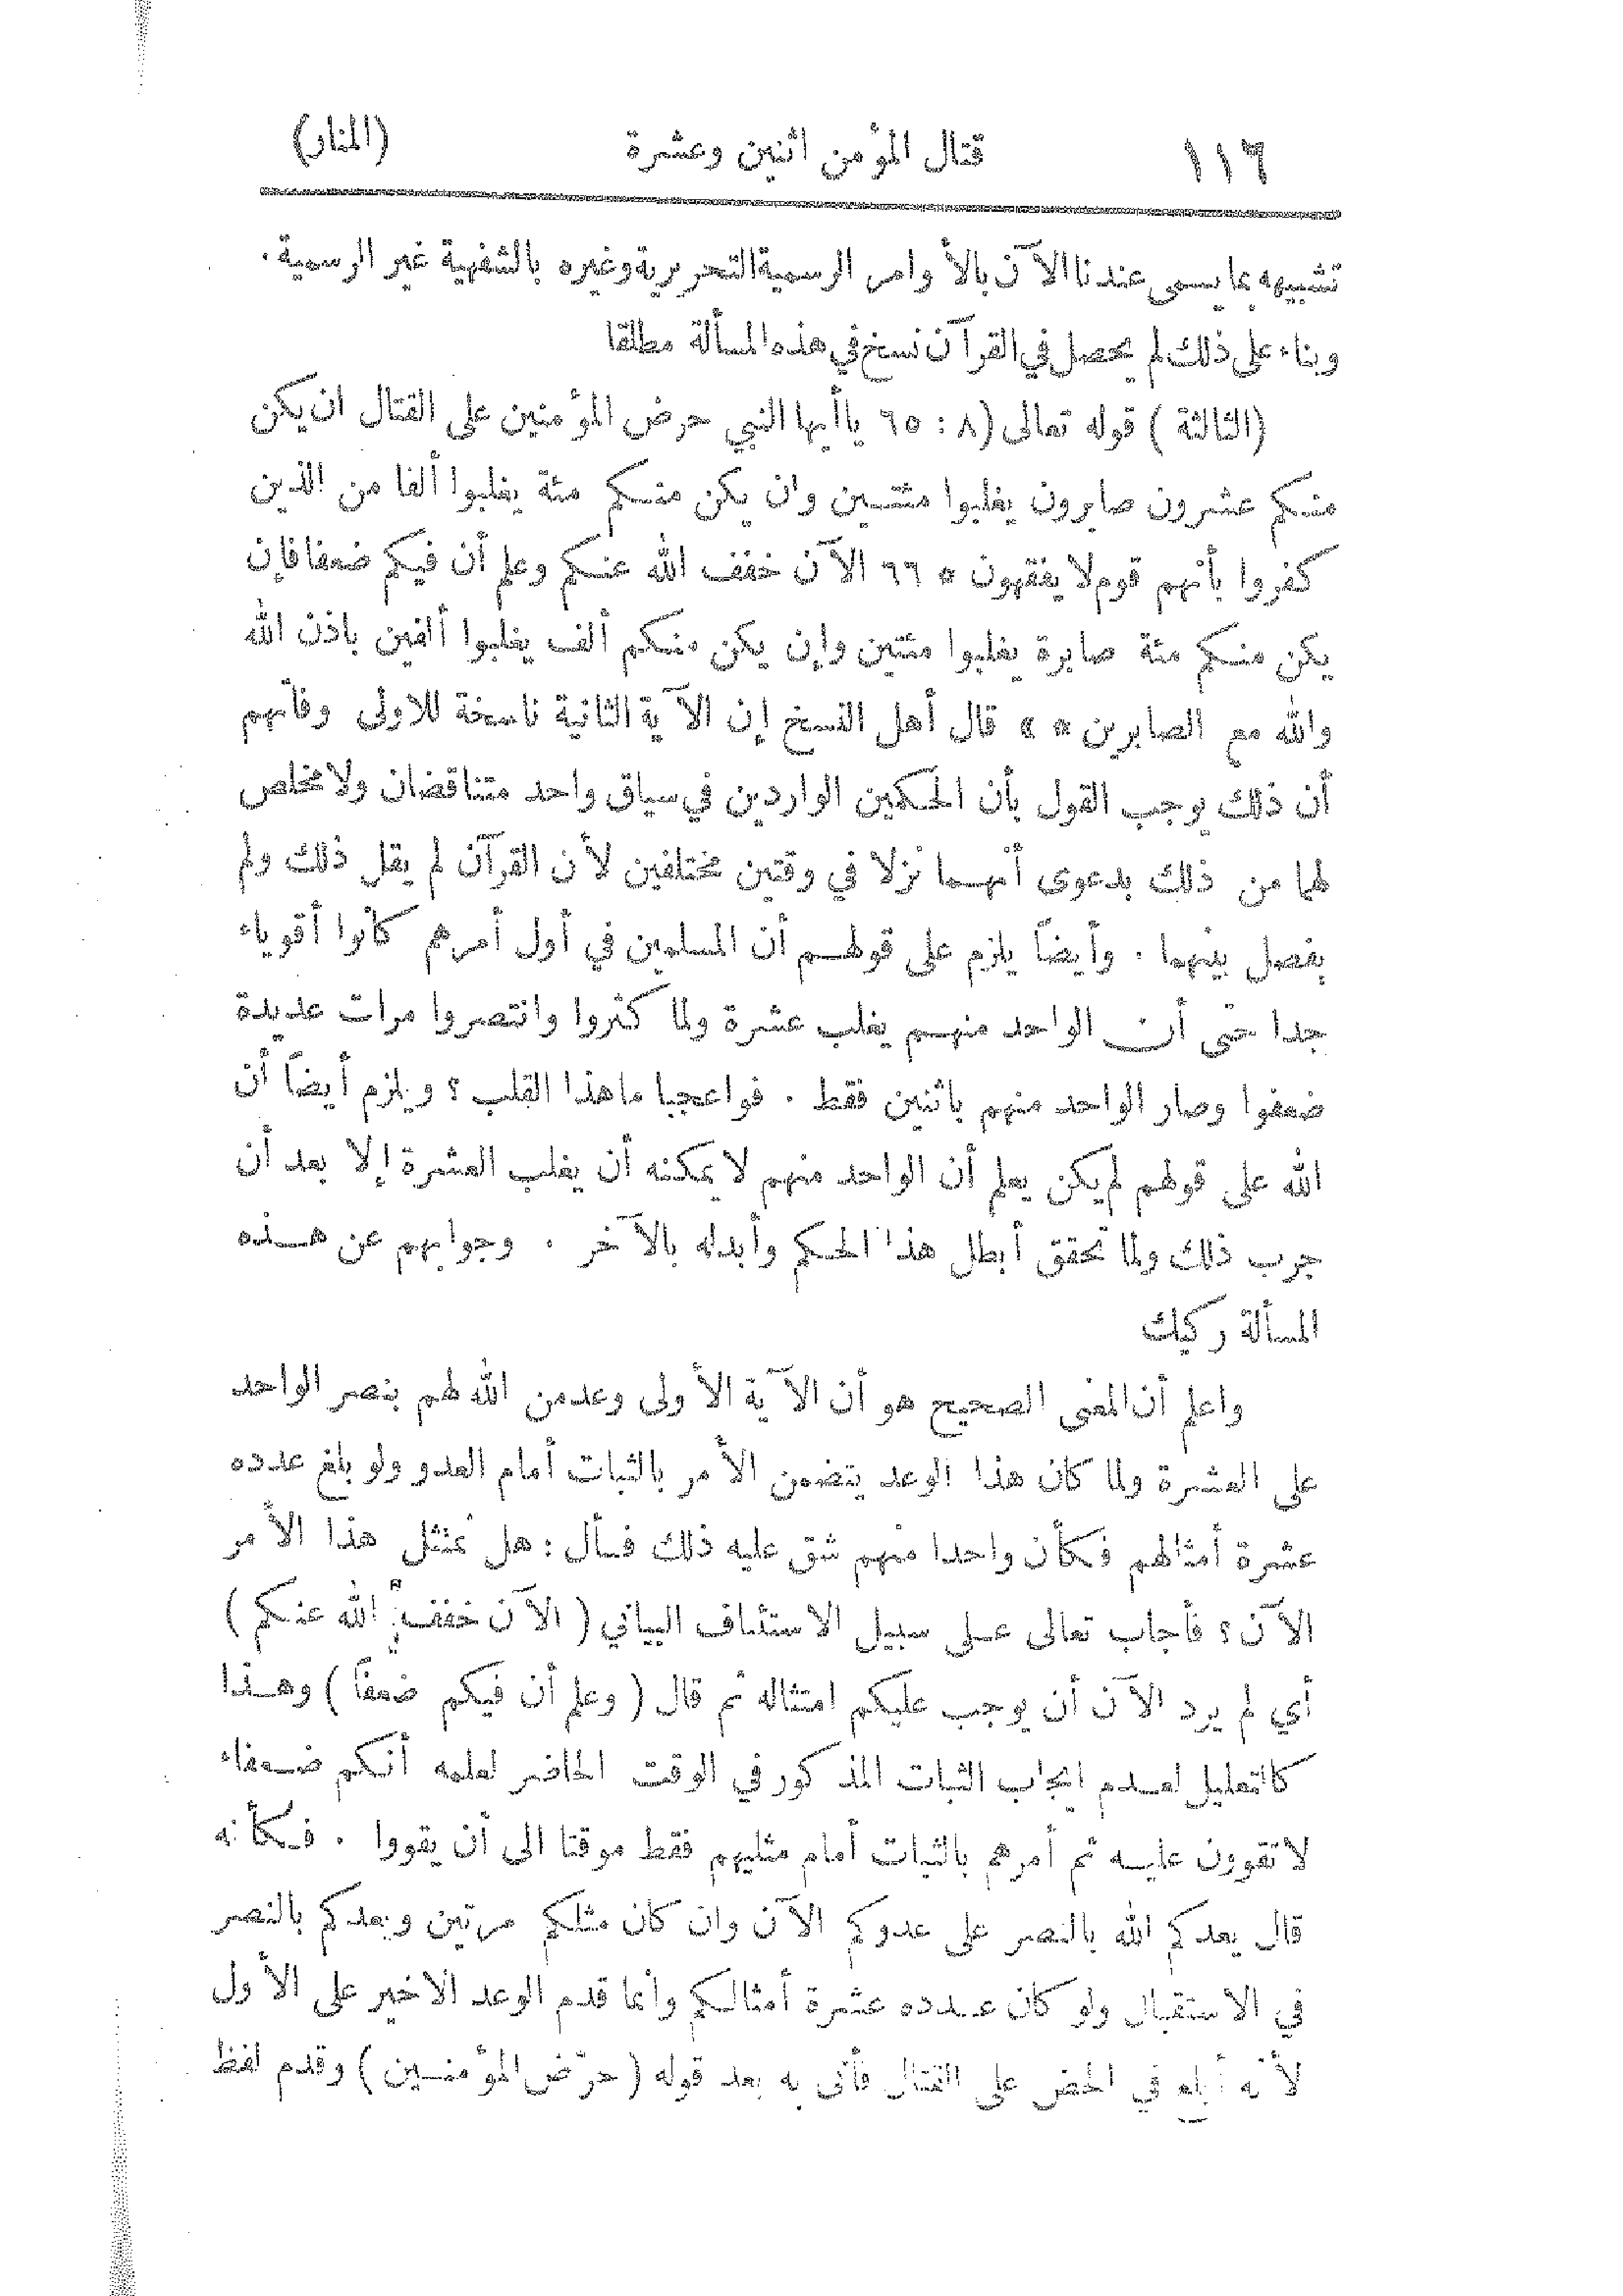 ١١٦ قتال المؤمن اثنين وعشرة (المنار)
تشبيهه بما يسمى عندنا الآن بالأوامر الرسمية التحريرية وغيره بالشفهية غير الرسمية .
وبناء على ذلك لم يحصل في القرآن نسخ في هذه المسألة مطلقا
(الثالثة) قوله تعالى (٨ : ٦٥ ياأيها النبي حرض المؤمنين على القتال ان يكن
منكم عشرون صابرون يغلبوا مئتين وان يكن منكم مئة يغلبوا ألفا من الذين
كفروا بأنهم قوم لا يفقهون * ٦٦ الآن خفف الله عنكم وعلم أن فيكم ضعفا فإن
يكن منكم مئة صابرة يغلبوا مئتين وإن يكن منكم ألف يغلبوا ألفين باذن الله
والله مع الصابرين * » قال أهل النسخ إن الآية الثانية ناسخة للاولى وفاتهم
أن ذلك يوجب القول بأن الحكمين الواردين في سياق واحد متناقضان ولا مخلص
لهما من ذلك بدعوى أنهما نزلا في وقتين مختلفين لأن القرآن لم يقل ذلك ولم
يفصل بينهما . وأيضاً يلزم على قولهم أن المسلمين في أول أمرهم كانوا أقوياء
جدا حتى أن الواحد منهم يغلب عشرة ولما كثروا وانتصروا مرات عديدة
ضعفوا وصار الواحد منهم باثنين فقط . فواعجبا ماهذا القلب ؟ ويلزم أيضاً أن
الله على قولهم لم يكن يعلم أن الواحد منهم لا يمكنه أن يغلب العشرة إلا بعد أن
جرب ذلك ولما تحقق أبطل هذا الحكم وأبدله بالآخر . وجوابهم عن هذه
المسألة ركيك
واعلم أن المعنى الصحيح هو أن الآية الأولى وعد من الله لهم بنصر الواحد
على العشرة ولما كان هذا الوعد يتضمن الأمر بالثبات أمام العدو ولو بلغ عدده
عشرة أمثالهم فكأن واحدا منهم شق عليه ذلك فسأل : هل نمتثل هذا الأمر
الآن ؟ فأجاب تعالى على سبيل الاستئناف البياني ( الآن خفف الله عنكم )
أي لم يرد الآن أن يوجب عليكم امتثاله ثم قال ( وعلم أن فيكم ضعفاً ) وهذا
كالتعليل لعدم ايجاب الثبات المذكور في الوقت الحاضر لعلمه أنكم ضعفاء
لا تقوون عليه ثم أمرهم بالثبات أمام مثليهم فقط موقتا الى أن يقووا . فكأنه
قال يعدكم الله بالنصر على عدوكم الآن وان كان مثلكم مرتين ويعدكم بالنصر
في الاستقبال ولو كان عدده عشرة أمثالكم وأنما قدم الوعد الاخير على الأول
لأنه أبلغ في الحض على القتال فأتى به بعد قوله ( حرّض المؤمنين ) وقدم لفظ